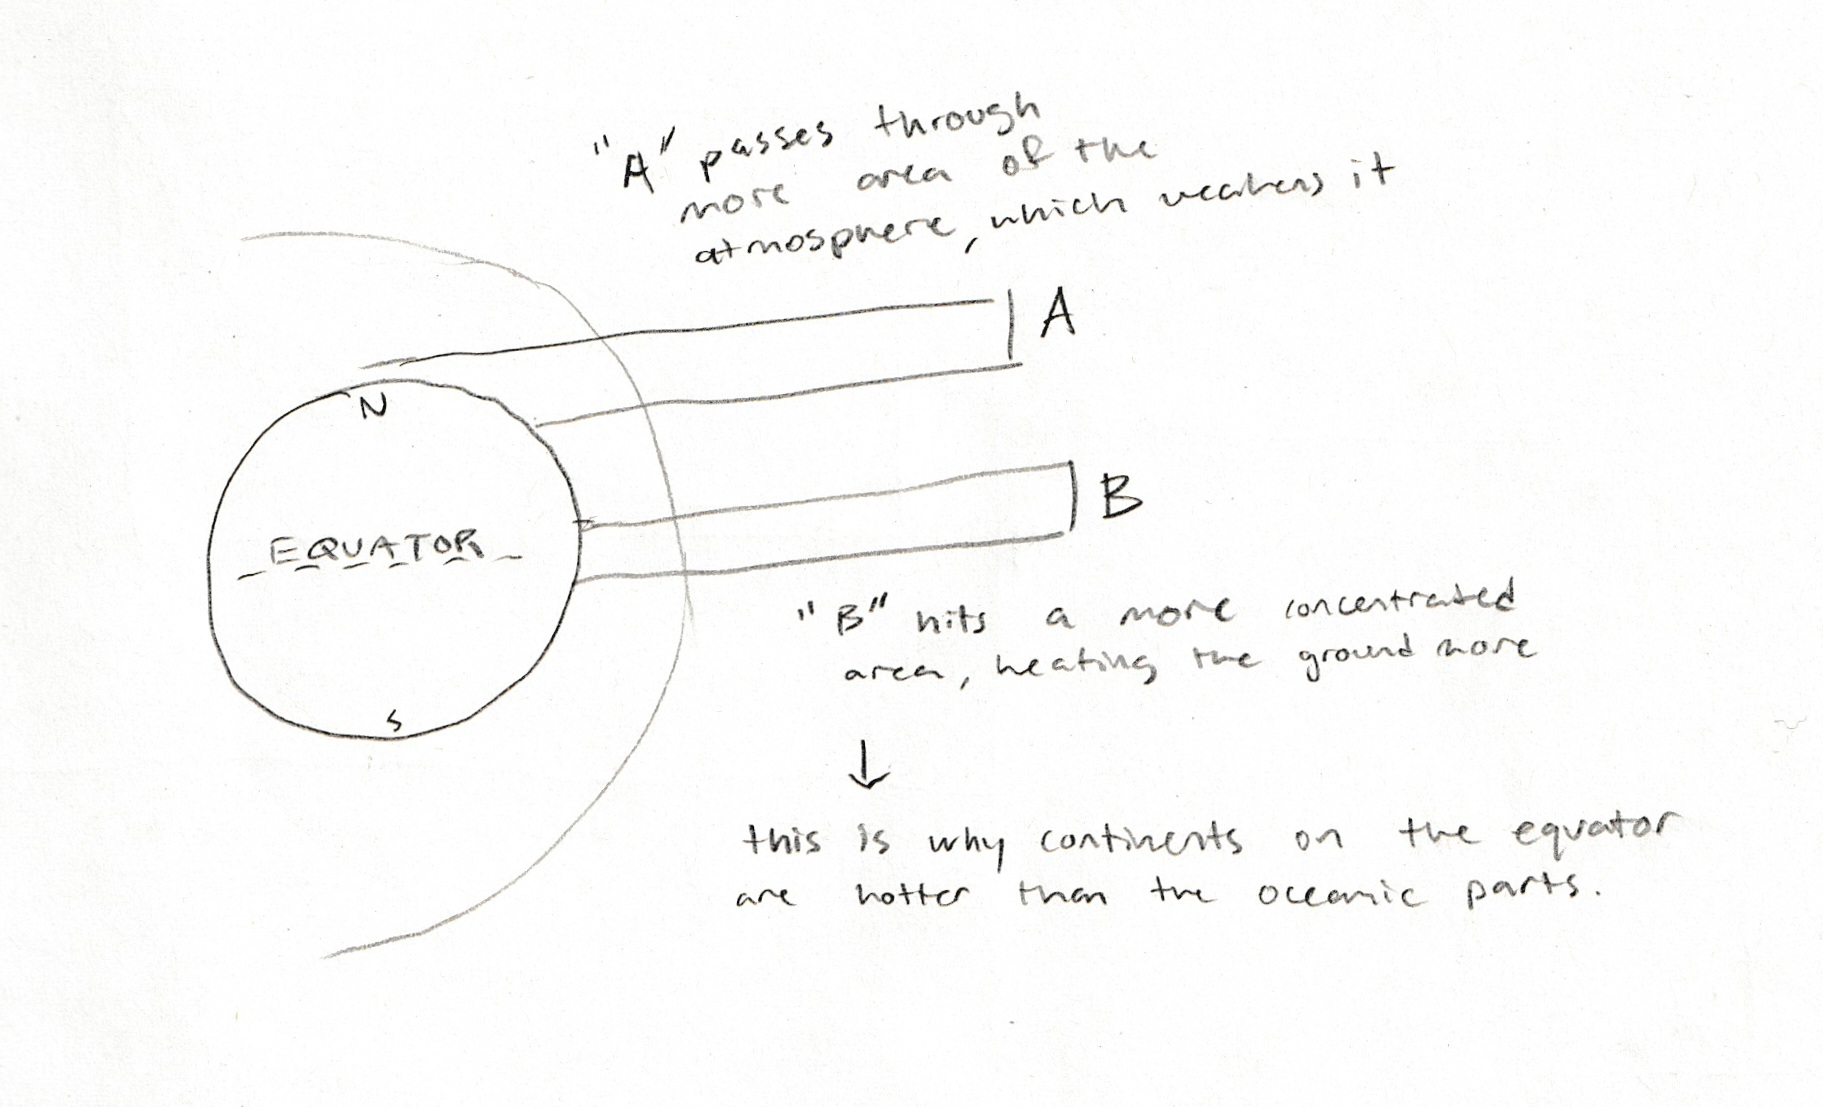 "A" passes through
more area of the
atmosphere, which weakens it
A
N
B
EQUATOR
"B" hits a more concentrated
area, heating the ground more
S
↓
this is why continents on the equator
are hotter than the oceanic parts.